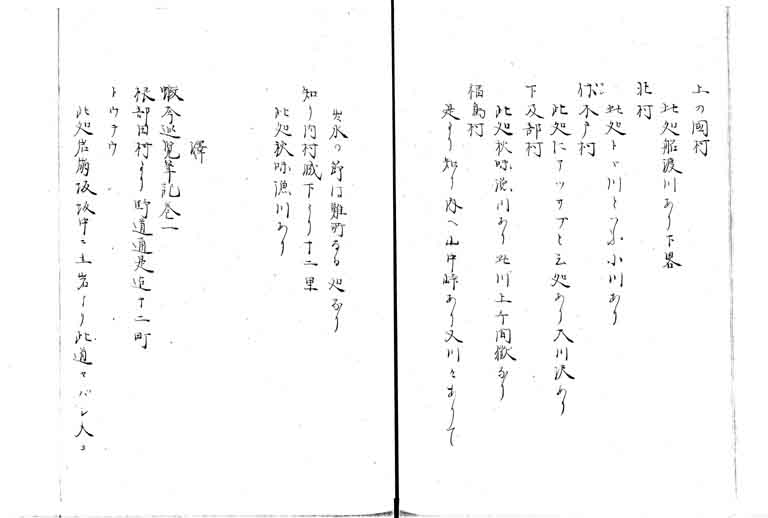 上の國村
此処船渡川あり下畧
北村
此処トヽ川と云ふ小川あり
木戸村
此処にアツサブと云処あり大川沢あり
下及部村
此処秋味漁川あり此川上千間嶽なり
福島村
是より知り内へ山中峠あり又川々ありて
出水の節は難所なる処なり
知り内村城下より十二里
此処秋味漁川あり
繹
巡覧筆記巻一
根部田村より野道通是迄十二町
トウラウ
此処岩崩坂坂中ニ土岩より此道